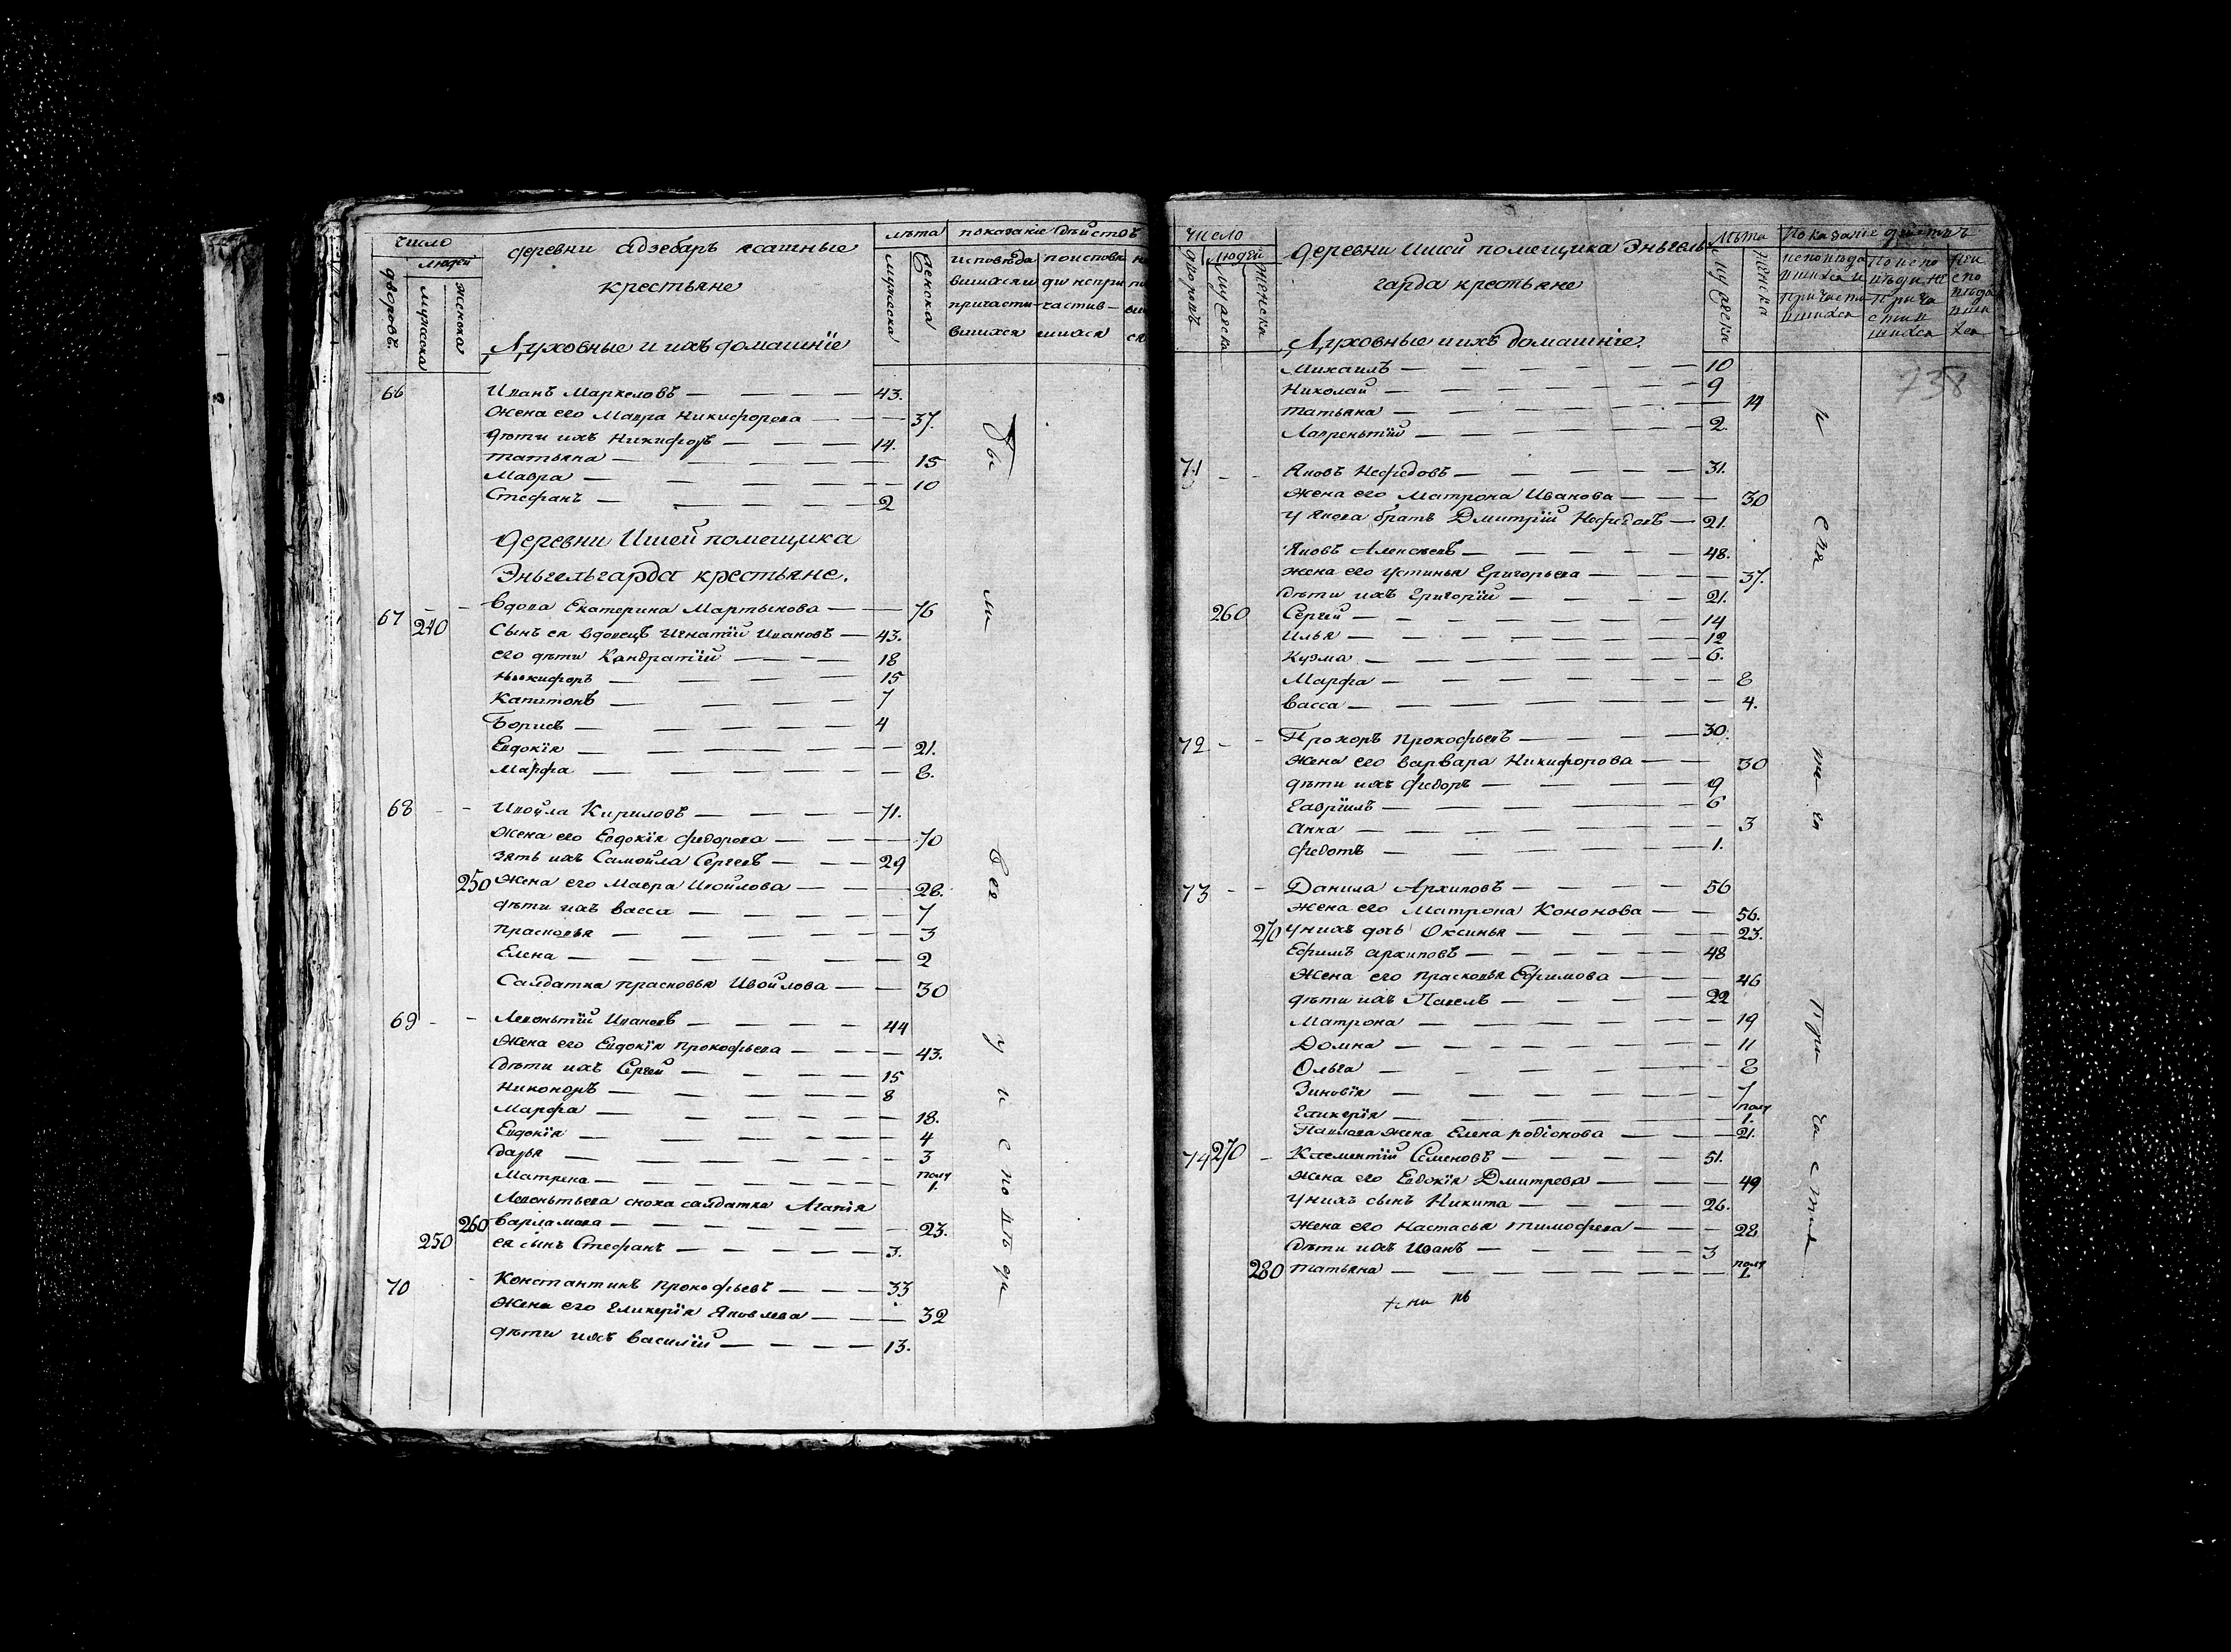 число
людей
дворовъ.
мужска
женска
деревни Адзебаръ ясашные
крестьяне
Духовные и ихъ домашнїе
лѣта
мужеска
женска
показанїе дѣйствъ
исповѣда поисповѣ
вшихся и ди непри
причасти- частив-
вшихся шихся
66 Иванъ Маркеловъ 43.
Жена его Мавра Никифорова 37.
дѣти ихъ Никифоръ 14.
Татьяна 15
Мавра 10
Стефанъ 2
деревни Ишей помещика
Эньгельгарда крестьяне.
67 Вдова Екатерина Мартынова 76
240 Сынъ ея вдовецъ Игнатїй Ивановъ 43.
его дѣти Кандратїй 18
Никифоръ 15
Капитонъ 7
Борисъ 4
Евдокїя 21.
Марфа 8.
68 Ивойла Кириловъ 71.
Жена его Евдокїя Федорова 70
зять ихъ Самойла Сергеевъ 29
250 Жена его Мавра Ивойлова 28.
дѣти ихъ Васса 7
Прасковья 3
Елена 2
Салдатка Прасковья Ивойлова 30
69 Леоньтїй Ивановъ 44
Жена его Евдокїя Прокофьева 43.
дѣти ихъ Сергей 15
Никоноръ 8
Марфа 18.
Евдокїя 4
Дарья 3
Матрена полу 1.
Леоньтьева сноха салдатка Агапїя
260 Варламова 23.
250 ея сынъ Стефанъ 3.
70 Константинъ Прокофьевъ 33
Жена его Гликерїя Яковлева 32
дѣти ихъ Василїй 13.
Бы
ли
все
у исповѣди
число
людей
дворовъ
мужска
женска
деревни Ишей помещика Эньгель-
гарда крестьяне
Духовные и ихъ домашнїе.
лѣта
мужеска
женска
Показанїе дѣйствъ
исповѣда Поиспо Неи
вшихся и вѣди не спо
Причасти- Прича вѣда
вшихся стив вши
шихся хся
738
Михаилъ 10
Николай 9
Татьяна 14
Лаврентїй 2.
71 Яковъ Нефедовъ 31.
Жена его Матрона Иванова 30
у Якова братъ Дмитрїй Нефедовъ 21.
Яковъ Алексеевъ 48.
жена его Устинья Григорьева 37.
дѣти ихъ Григорїй 21.
260 Сергей 14
Илья 12
Кузма 6.
Марфа 8
Васса 4.
72 Прохоръ Прокофьевъ 30.
Жена его Варвара Никифорова 30
дѣти ихъ Федоръ 9
Гаврїилъ 6
Анна 3
Федотъ 1.
73 Данила Архиповъ 56
Жена его Матрона Кононова 56.
270 у нихъ дочь Оксинья 23.
Ефимъ Архиповъ 48
Жена его Прасковья Ефимова 46
дѣти ихъ Павелъ 22
Матрона 19
Домна 11
Ольга 8
Зиновїя 7
Гликерїя полу 1.
Павлова жена Елена Родїонова 21.
74 270 Клементїй Семеновъ 51.
Жена его Евдокїя Дмитрева 49
у нихъ сынъ Никита 26.
Жена его Настасья Тимофеева 28
дѣти ихъ Иванъ 3
280 Татьяна полу 1.
и
свя
та
го
При
ча
стия